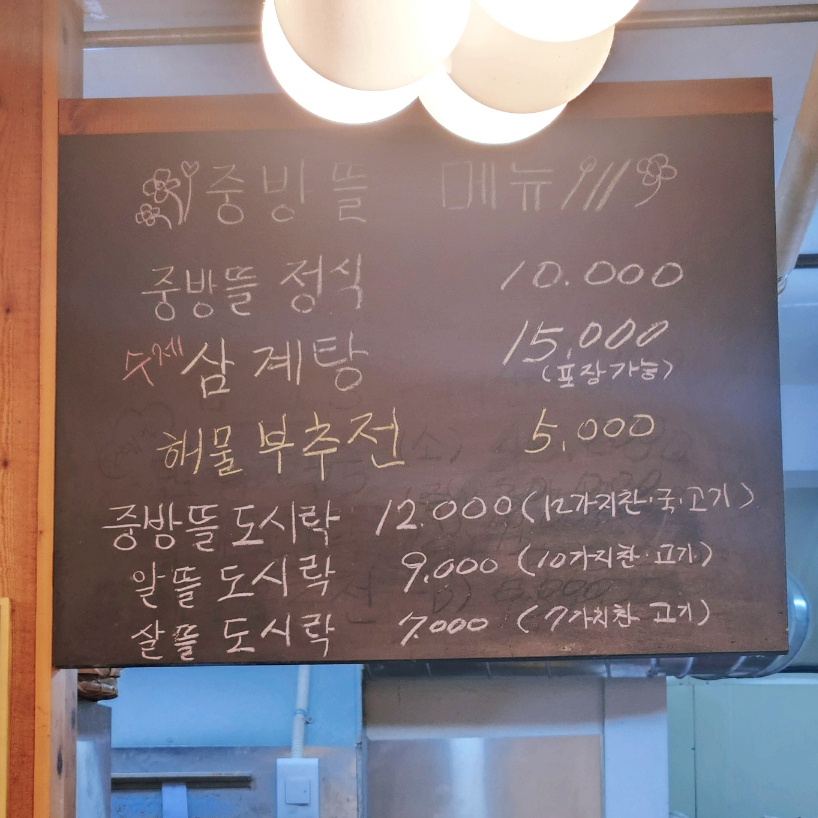 중방뜰 메뉴
중방뜰 정식 10.000
수제 삼계탕 15,000
(포장가능)
해물부추전 5,000
중방뜰도시락 12.000(12가지찬·국·고기)
알뜰도시락 9,000 (10가지찬·고기)
살뜰도시락 7.000 (7가지찬 고기)